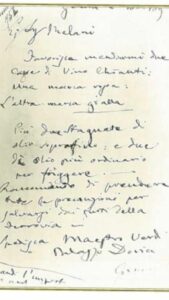 Sig Melani
Favorisca mandarmi due
Casse di Vino Chianti:
Una marca rossa:
L'altra marca gialla
Più due stagnate di
olio e due
di olio più ordinario
per friggere
Raccomando di prendere
tutte le precauzioni per
salvarsi dai furti della
Ferrovia
Maestro Verdi
Palazzo Doria